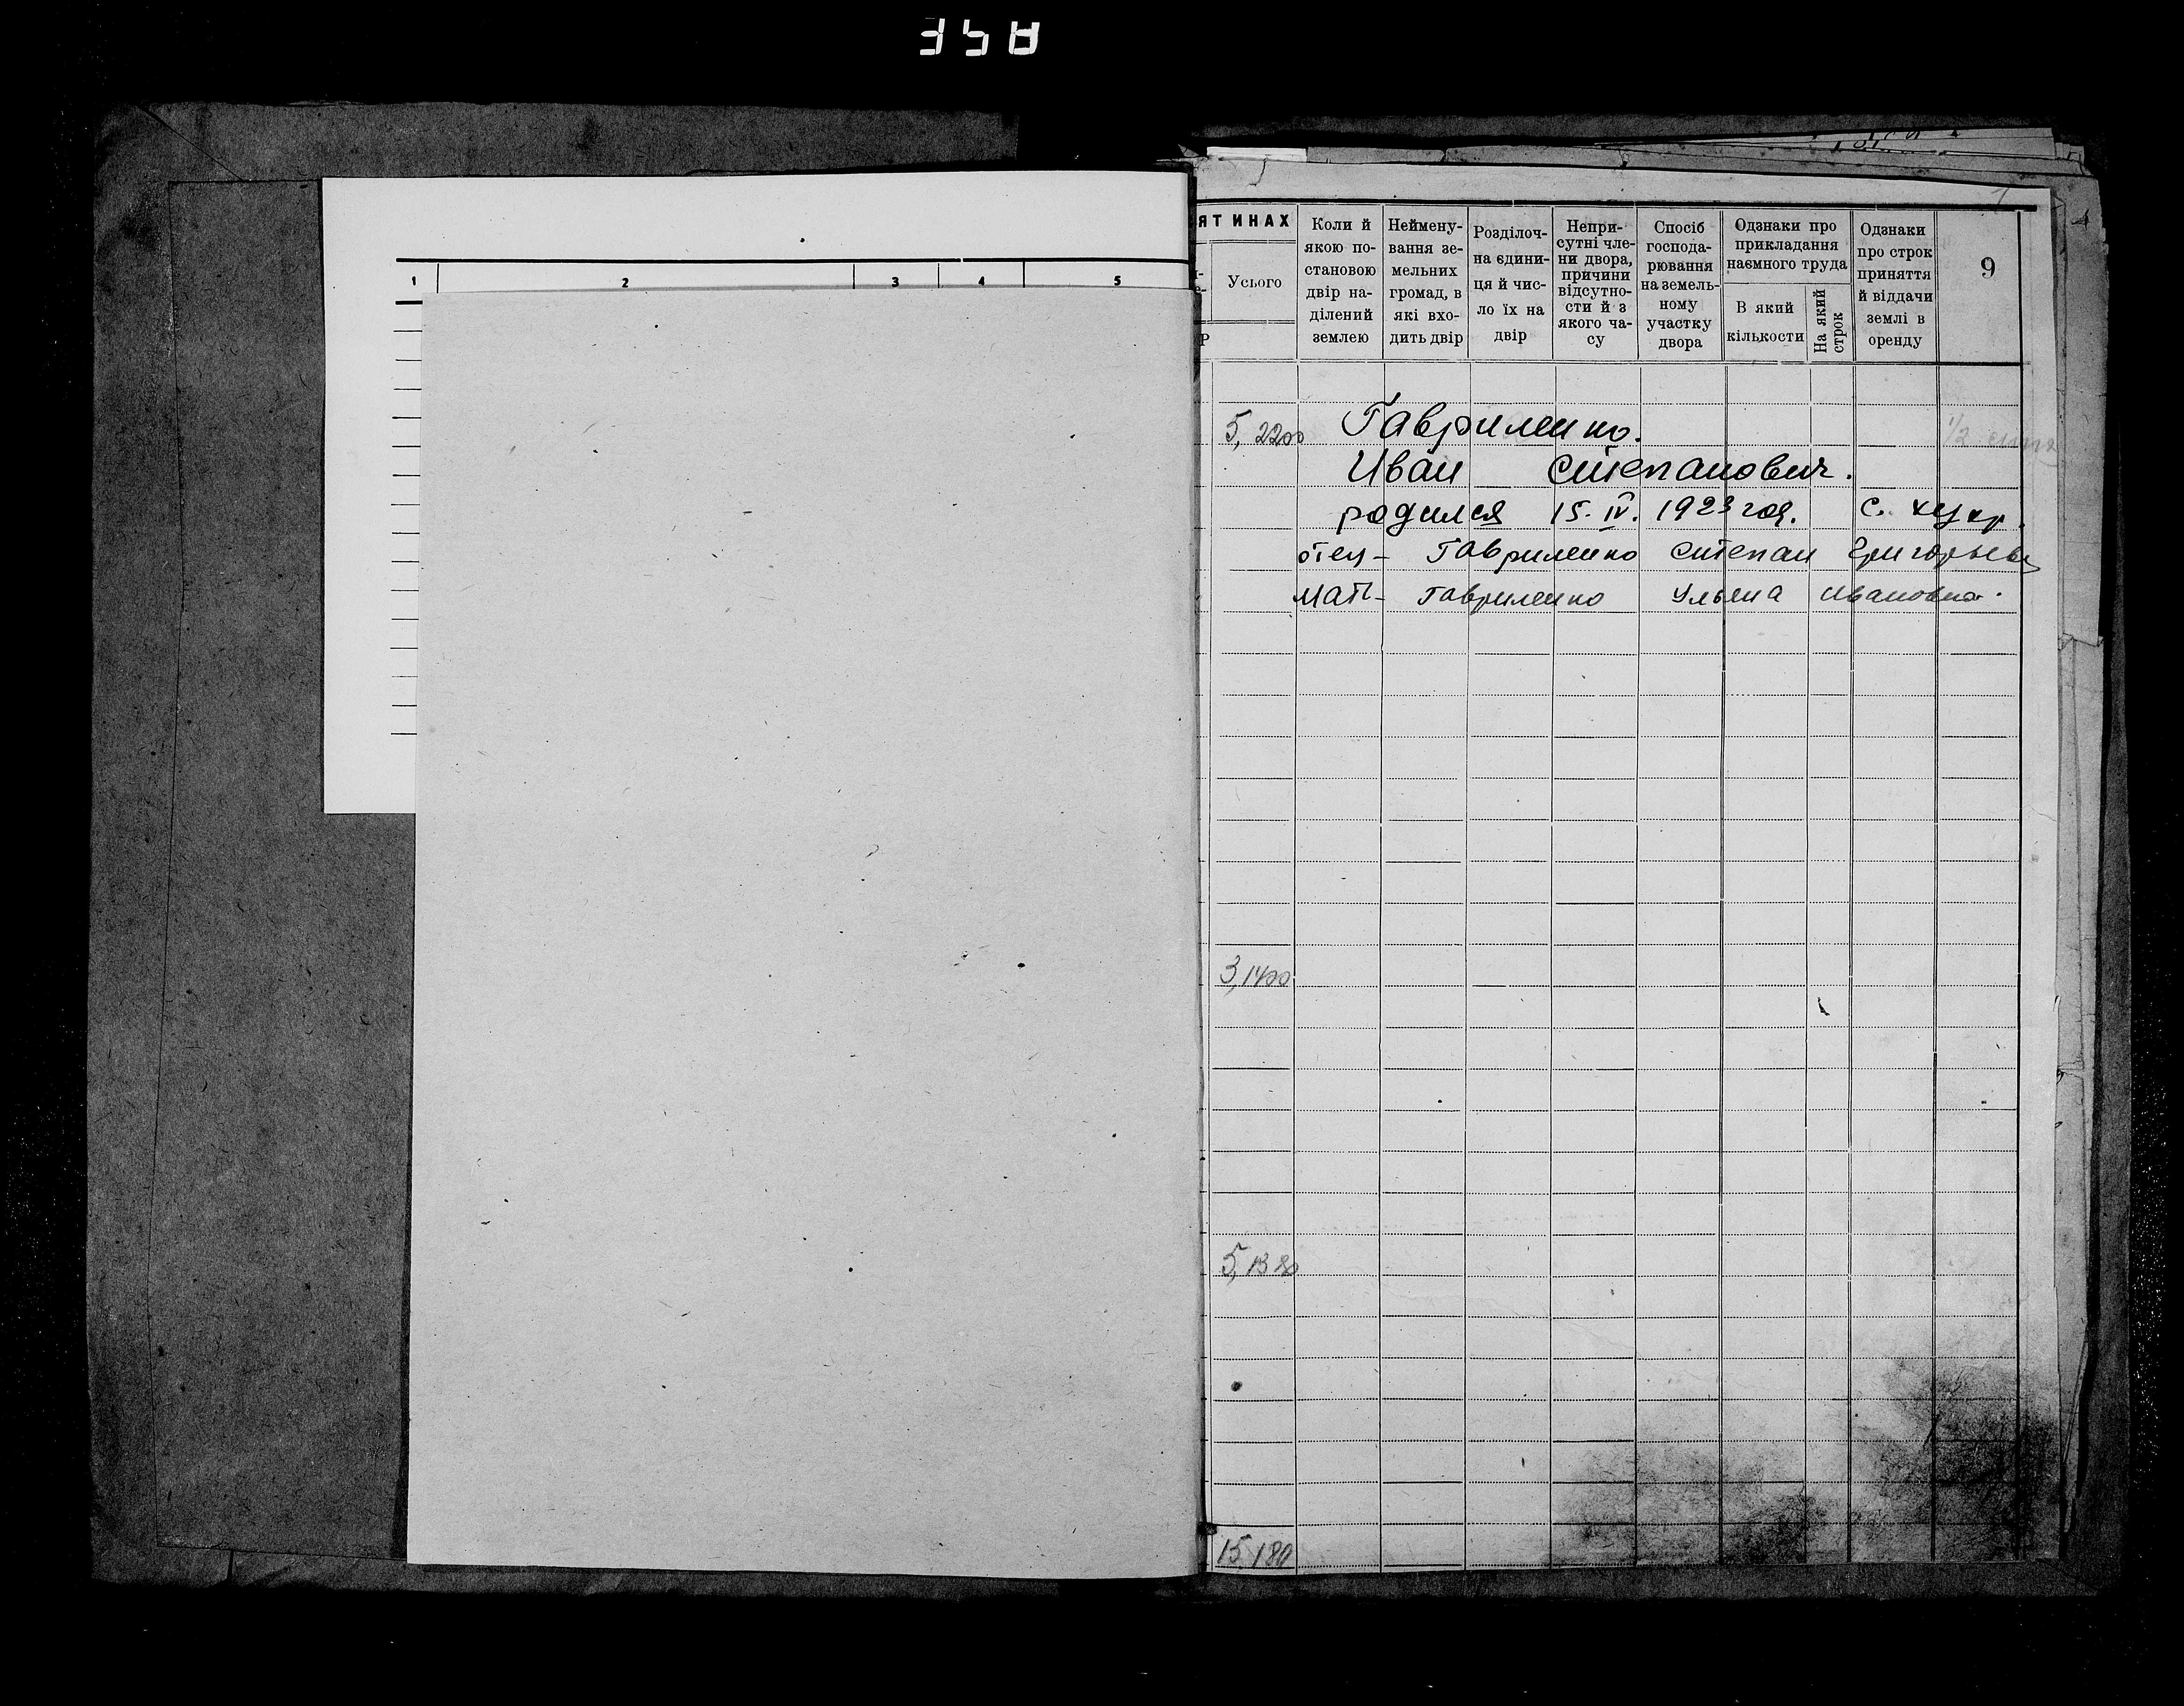 1 2 3 4 5
ЯТИНАХ
Усього
Коли й якою по-
становою
двір на-
ділений
землею
Неймену-
вання зе-
мельних
громад, в
які вхо-
дить двір
Розділоч-
на єдини-
ця й чис-
ло їх на
двір
Непри-
сутні чле-
ни двора,
причини
відсутно-
сти й з
якого ча-
су
Спосіб
господа-
рювання
на земель-
ному
участку
двора
Одзнаки про
прикладання
наємного труда
В який
кількости
На який
строк
Одзнаки
про строк
приняття
й віддачи
землі в
оренду
9
5,2200 Гавриленко.
Иван Степанович.
родился 15. IV. 1923 год. с.
отец – Гавриленко Степан Григорьев
мать – Гавриленко Ульяна Ивановна.
3,1400
5,1380
15 180